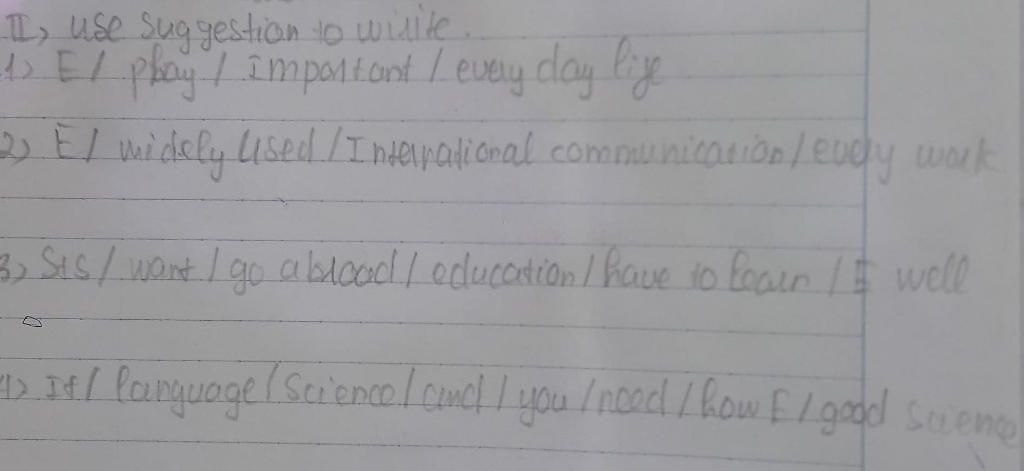 II, use suggestion to write.
1) E / play / Important / every day life
2) E / widely used / International communication / every work
3) Sts / want / go abroad / education / have to learn / E well
4) It / language / Science / and / you / need / how E / good science